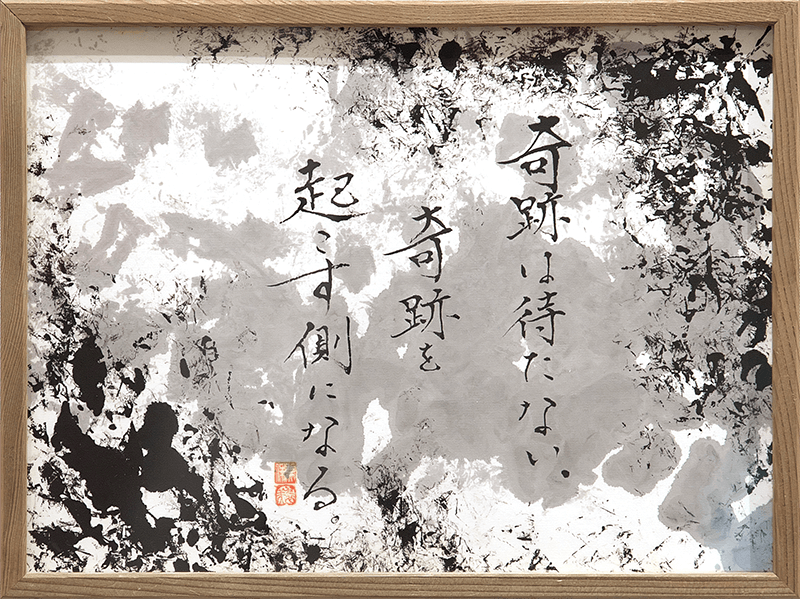 奇跡は待たない。
奇跡を
起こす側になる。